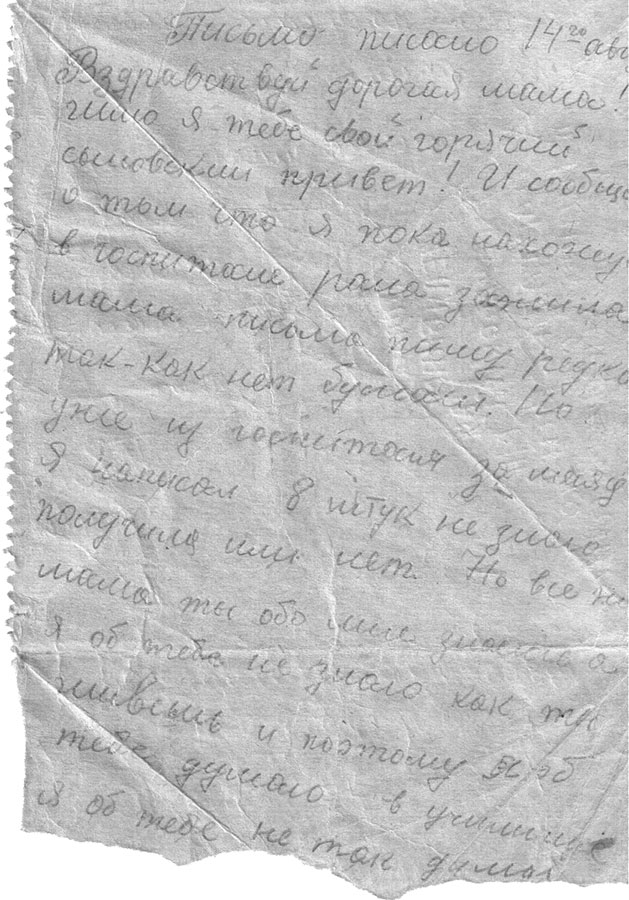 Письмо писано 14го авг
Вздравствуй дорогая мама!
шлю я тебе свой горячий
сыновский привет! И сообща
о том что я пока нахожу
в госпитале рана зажила
мама письма пишу редко
так-как нет бумаги. Но
уже из госпиталя за
я написал 8 штук не знаю
получила или нет. Но все
мама ты обо мне знаешь а
я об тебе не знаю как ты
живешь и поэтому я об
тебе думаю в училище
я об тебе не так думал